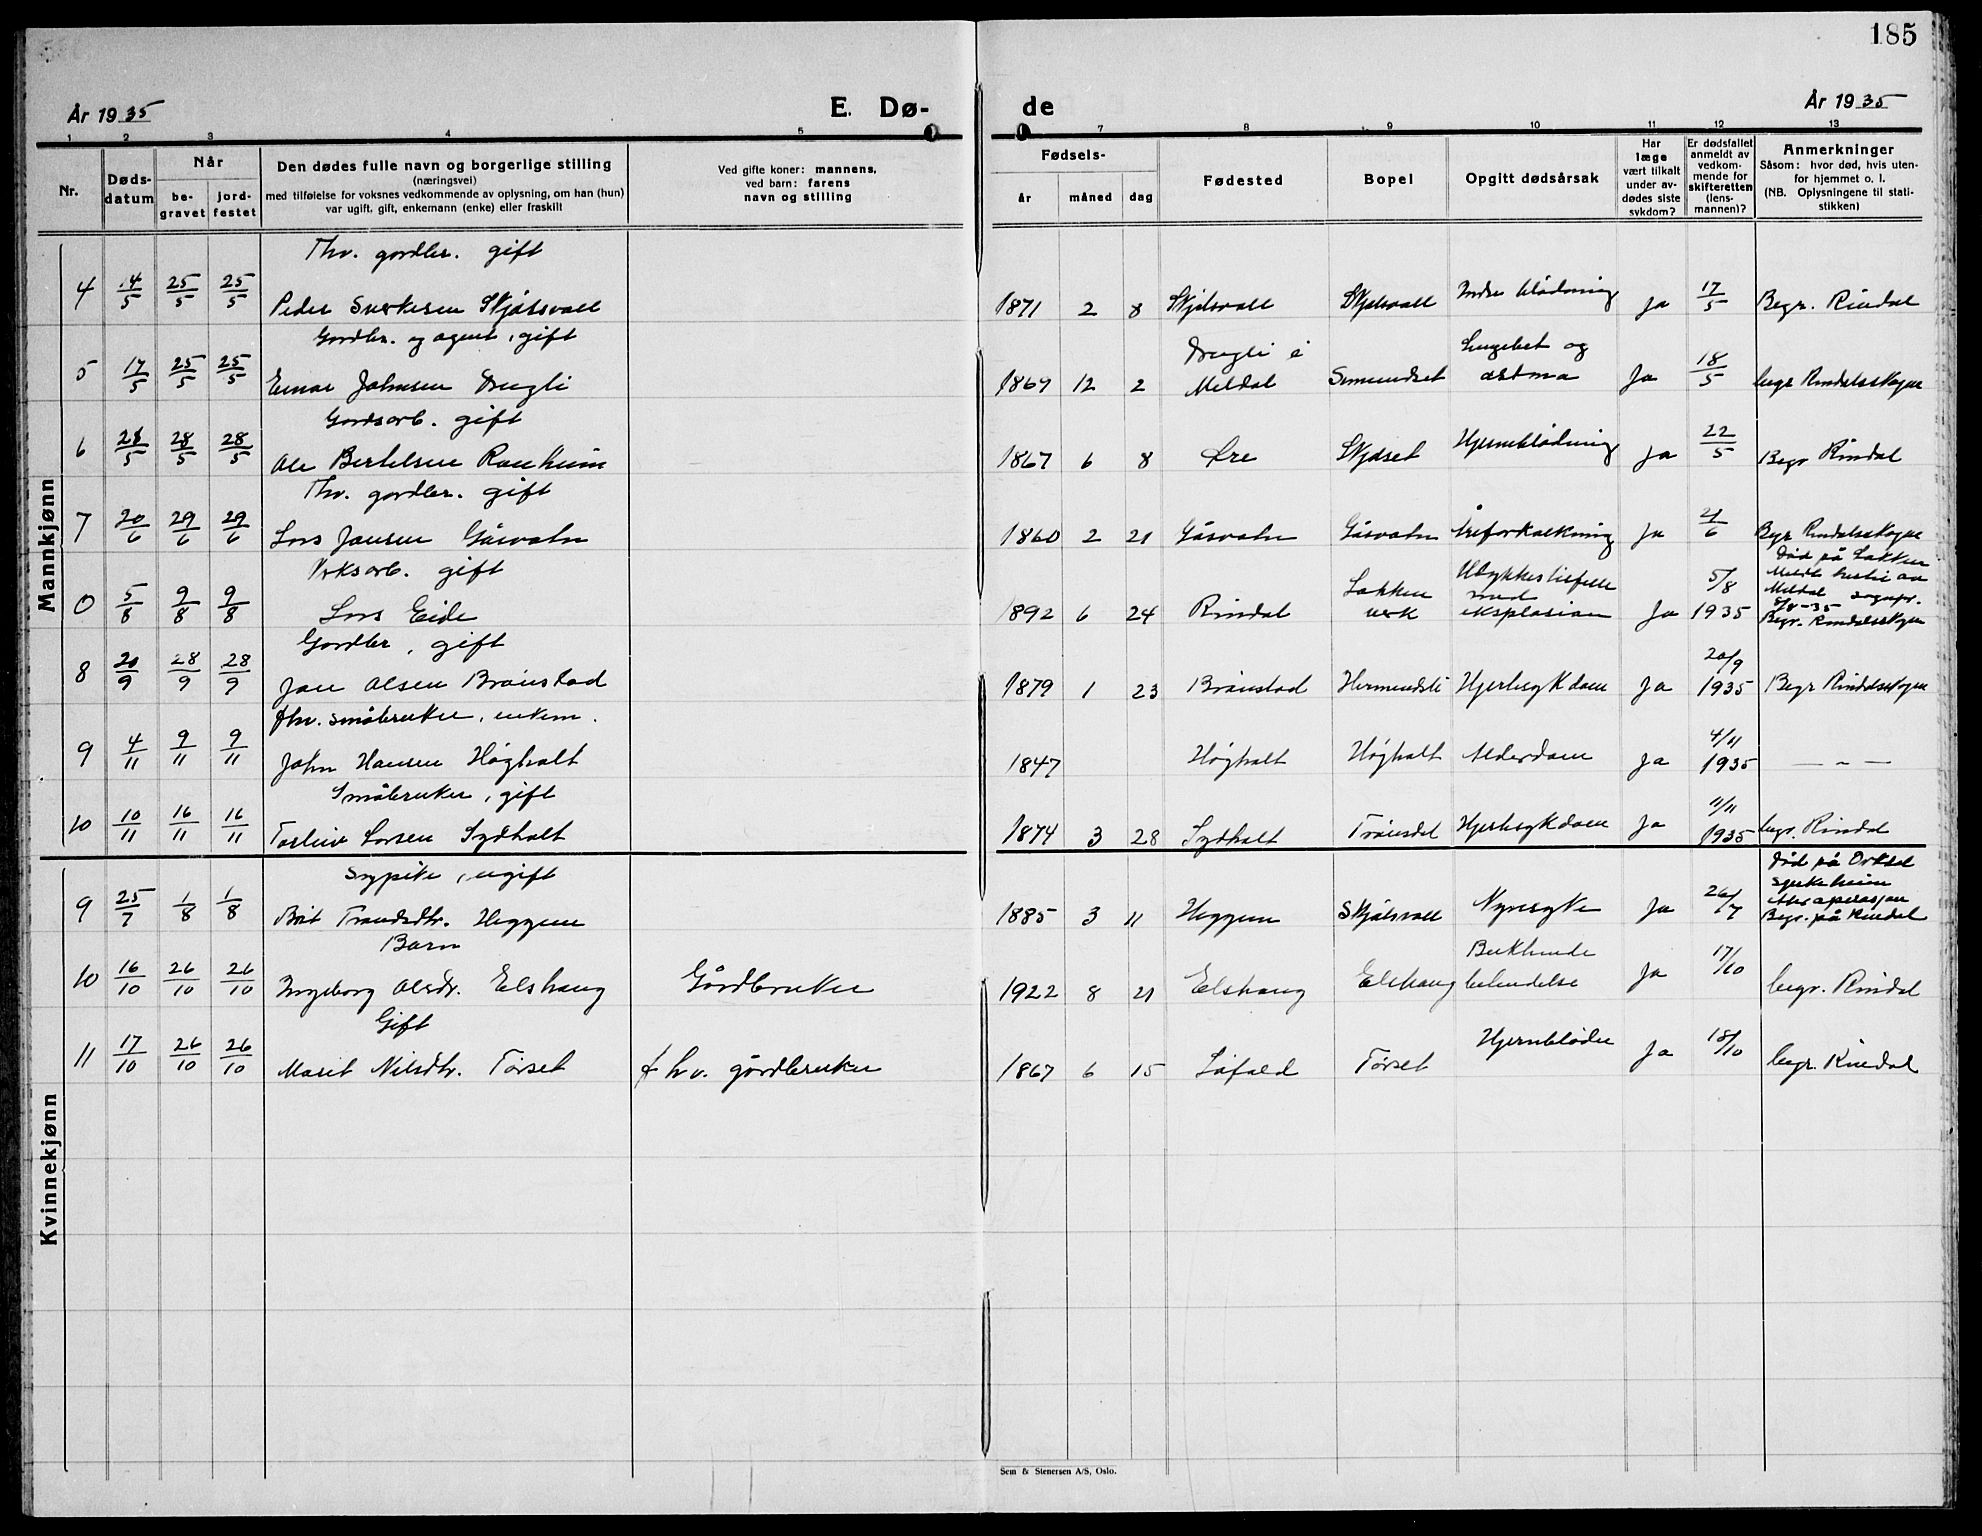 185
År 1935
E. Dø-
de
År 1935
1 2 3 4 5 7 8 9 10 11 12 13
Nr.
Døds-
datum
Når
be-
gravet
jord-
festet
Den dødes fulle navn og borgerlige stilling
(næringsvei)
med tilføielse for voksnes vedkommende av oplysning, om han (hun)
var ugift, gift, enkemann (enke) eller fraskilt
Ved gifte koner: mannens,
ved barn: farens
navn og stilling
Fødsels-
år
måned
dag
Fødested
Bopel
Opgitt dødsårsak
Har
læge
vært tilkalt
under av-
dødes siste
sykdom?
Er dødsfallet
anmeldt av
vedkom-
mende for
skifteretten
(lens-
mannen)?
Anmerkninger
Såsom: hvor død, hvis uten-
for hjemmet o. l.
(NB. Oplysningene til stati-
stikken)
Mannkjønn
Fhv. gardbr. gift
4 14/5 25/5 25/5 Peder Sverkesen Skjølsvoll 1871 2 8 Skjølsvoll Skjølsvoll Indre blødning Ja 17/5 Begr. Rindal
Gardbr. og agent, gift
5 17/5 25/5 25/5 Einar Johnsen Drugli 1869 12 2 Drugli i Meldal Lungebet og astma Ja 18/5 begr Rindalsskogen
Gardsarb. gift
6 28/5 28/5 Ole Bertelsen Ranheim 1867 6 8 Øre Hjerneblødning Ja 22/5 Begr Rindal
Fhv. gardbr. gift
7 20/6 29/6 29/6 Lars Jansen Gåsvatn 1860 2 21 Gåsvatn Gåsvatn Åreforkalkning Ja 21/6 Begr Rindalsskogen
Verksarb. gift
0 5/8 9/8 9/8 Lars Eide 1892 6 24 Rindal Løkken verk Ulykkestilfelle med eksplosion Ja 5/8 1935 Død på Løkken
Meldal sognepr.
5/8-35
Begr. Rindalsskogen
Gardbr, gift
8 20/9 28/9 28/9 Jon Olsen Brønstad 1879 1 23 Brønstad Hermundsli Hjertesykdom Ja 20/9 1935 Begr Rindalsskogen
fhv. småbruker, enkem.
9 4/11 9/11 9/11 John Hansen Høgholt 1847 Høgholt Høgholt Alderdom Ja 4/11 1935 — " —
Småbruker, gift
10 10/11 16/11 16/11 Torleiv Larsen Sydhalt 1874 3 28 Sydhalt Trønsdal Hjertesykdom Ja 11/11 1935 begr. Rindal
Kvinnekjønn
Sypike, ugift
9 25/7 1/8 1/8 Brit Trondsdtr. Heggem 1885 3 11 Heggem Skjølsvoll Nyresyke Ja 26/7 Død på Orkdal
sjukeheim
etter operasjon
Begr. på Rindal
Barn
10 16/10 26/10 26/10 Ingeborg Olsdr. Elshaug Gårdbruker 1922 8 21 Elshaug Elshaug Bukhinde betendelse Ja 17/10 begr. Rindal
Gift
11 17/10 26/10 26/10 Marit Nilsdtr. Tørset fhv. gårdbruker 1867 6 15 Løfald Tørset Hjerneblødn Ja 18/10 begr. Rindal
Sem & Stenersen A/S, Oslo.